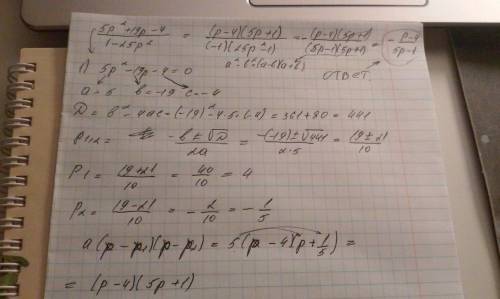 (5p² + 19p - 4)/(1 - 25p²) = (p-4)(5p+1)/((-1)(25p²-1)) = -(p-4)(5p+1)/((5p-1)(5p+1)) = -(p-4)/(5p-1)
a² - b² = (a-b)(a+b)
ответ.
1) 5p² - 19p - 4 = 0
a = 5 b = -19 c = -4
D = b² - 4ac = (-19)² - 4·5·(-4) = 361 + 80 = 441
p1,2 = (-b ± √D)/2a = (-(-19) ± √441)/(2·5) = (19 ± 21)/10
p1 = (19+21)/10 = 40/10 = 4
p2 = (19-21)/10 = -2/10 = -1/5
a(p - p1)(p - p2) = 5(p - 4)(p + 1/5) =
= (p-4)(5p+1)